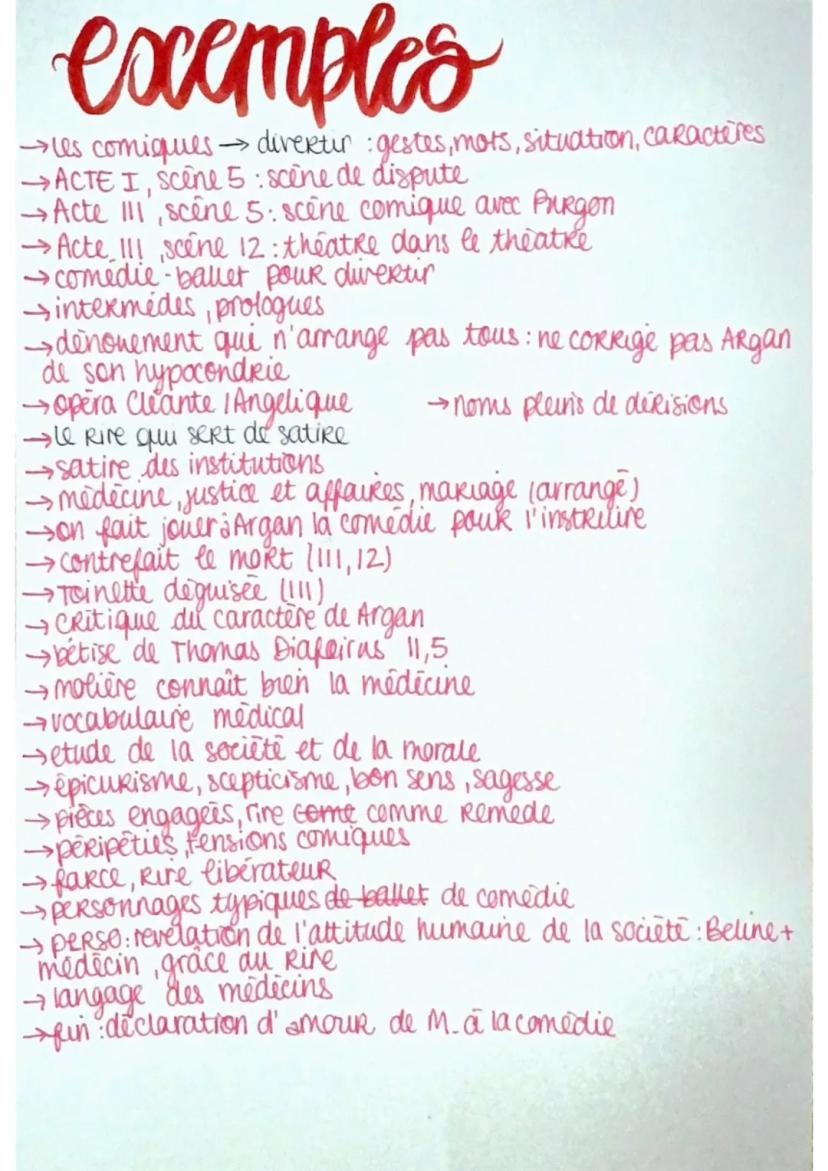 excemples
→ les comiques → divertir : gestes, mots, situation, caractères
→ ACTE I, scène 5 : scène de dispute
→ Acte III, scène 5 : scène comique avec Purgon
→ Acte III, scène 12 : théatre dans le théatre
→ comédie-ballet pour divertir
→ intermèdes, prologues
→ dénouement qui n'arrange pas tous : ne corrige pas Argan
de son hypocondrie
→ opéra Cléante / Angelique → noms pleins de dérisions
→ le rire qui sert de satire
→ satire des institutions
→ médecine, justice et affaires, mariage (arrangé)
→ on fait jouer à Argan la comédie pour l'instruire
→ contrefait le mort (III, 12)
→ Toinette déguisée (III)
→ critique du caractère de Argan
→ bétise de Thomas Diafoirus II, 5
→ molière connaît bien la médecine
→ vocabulaire médical
→ etude de la société et de la morale
→ épicurisme, scepticisme, bon sens, sagesse
→ pièces engagées, rire come comme remede
→ péripéties, tensions comiques
→ farce, rire libérateur
→ personnages typiques de ballet de comédie
→ perso : revelation de l'attitude humaine de la société : Beline +
médecin, grâce au rire
→ langage des médecins
→ fin : déclaration d'amour de M. à la comédie